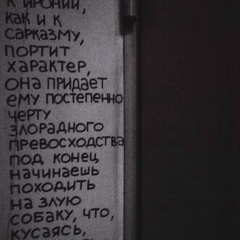 К ИРОНИИ,
КАК И К
САРКАЗМУ,
ПОРТИТ
ХАРАКТЕР,
ОНА ПРИДАЕТ
ЕМУ ПОСТЕПЕННО
ЧЕРТУ
ЗЛОРАДНОГО
ПРЕВОСХОДСТВА
ПОД КОНЕЦ
НАЧИНАЕШЬ
ПОХОДИТЬ
НА ЗЛУЮ
СОБАКУ, ЧТО,
КУСАЯСЬ,